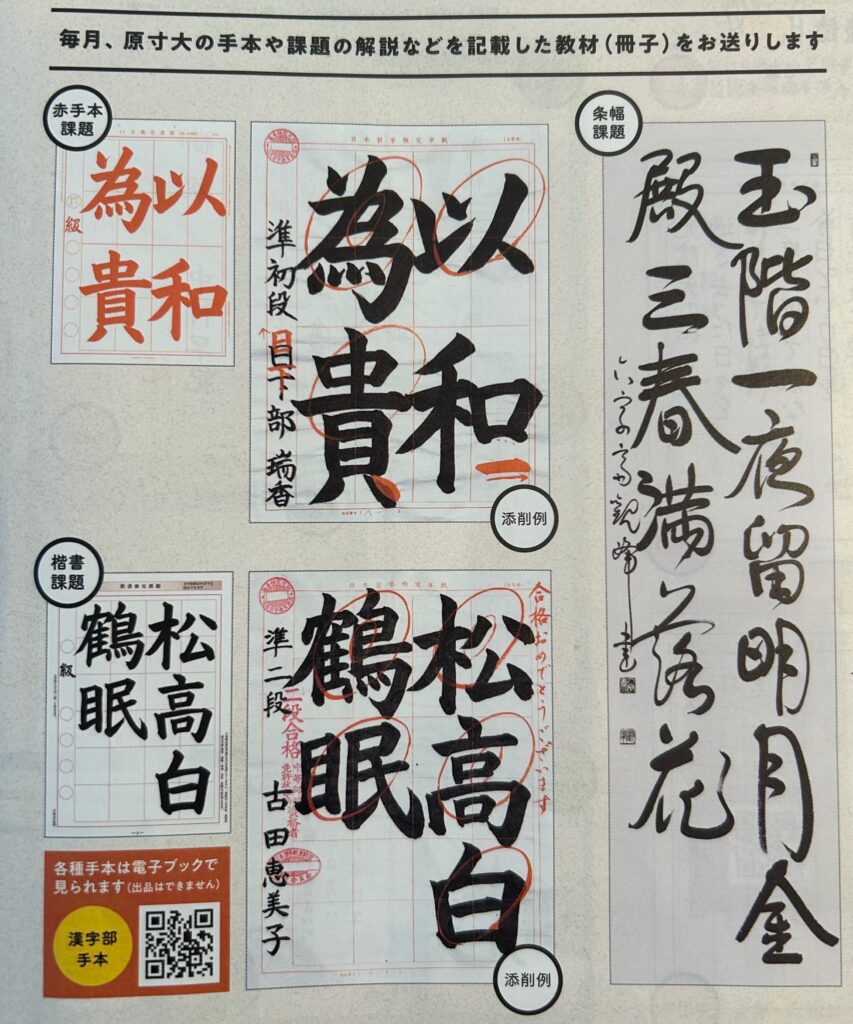 毎月、原寸大の手本や課題の解説などを記載した教材（冊子）をお送りします
赤手本
課題
以和
為貴
級
日本習字検定半紙
以和
為貴
準初段 日下部 瑞香
日下
添削例
条幅
課題
玉階一夜留明月金
殿三春満落花
楷書
課題
松高白
鶴眠
級
日本習字検定半紙
合格おめでとうございます
松高白
鶴眠
二段合格
準二段 古田恵美子
添削例
各種手本は電子ブックで
見られます（出品はできません）
漢字部
手本